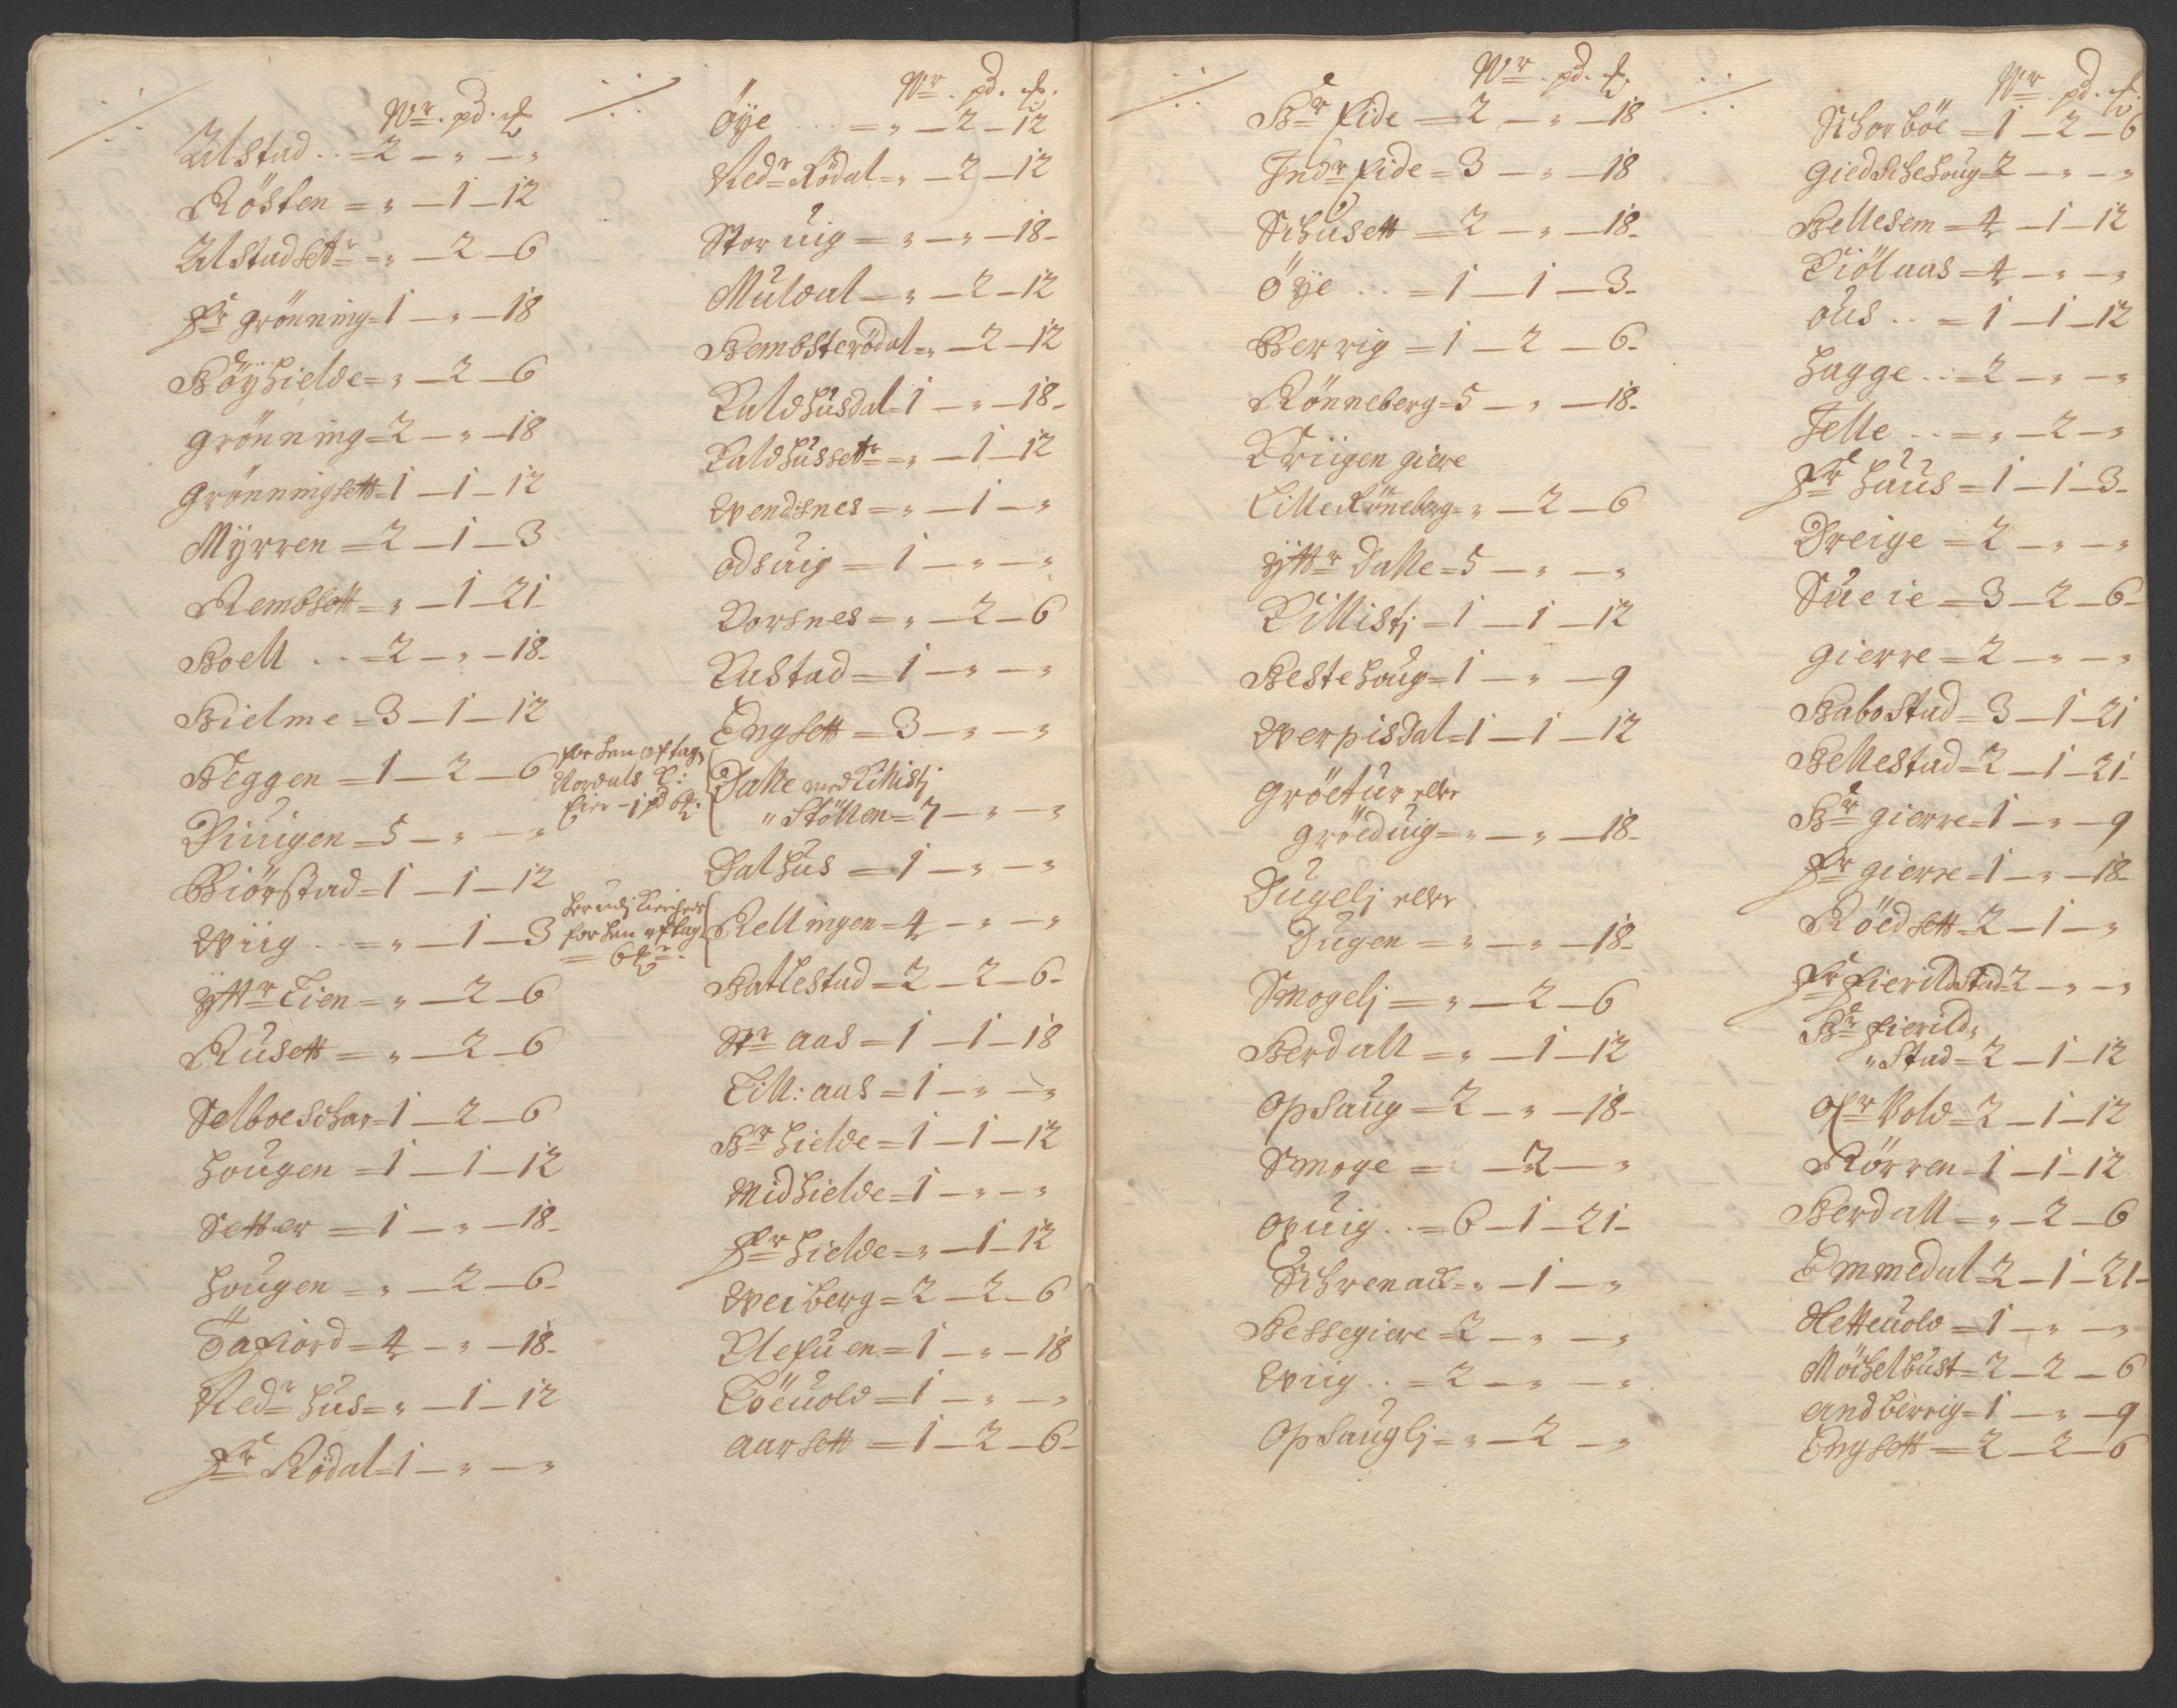 Wr. pd. ℔
Ulstad .. = 2 — „ — „
Rösten = „ — 1 — 12
Ulstadsettr = „ — 2 — 6
Fr grönning = 1 — „ — 18
Böyhielde = „ — 2 — 6
grönning = 2 — „ — 18
grönningsett = 1 — 1 — 12
Myrren = 2 — 1 — 3
Rembsett = „ — 1 — 21
Boell .. = 2 — „ — 18
Hielme = 3 — 1 — 12
Heggen = 1 — 2 — 6
Diuigen = 5 — „ — „
Biörstad = 1 — 1 — 12
Wiig .. = „ — 1 — 3
yttr Lien = „ — 2 — 6
Rusett = „ — 2 — 6
Selboeschar = 1 — 2 — 6
hougen = 1 — 1 — 12
Setter = 1 — „ — 18
hougen = „ — 2 — 6
Tafiord = 4 — „ — 18
Nedr hus = „ — 1 — 12
Fr Rödal = 1 — „ — „
Wr. pd. ℔.
Öye = „ — 2 — 12
Nedr Rödal = „ — 2 — 12
Storuig = „ — „ — 18
Muldal = „ — 2 — 12
Hembsterödal = „ — 2 — 12
Kaldhusdal = 1 — „ — 18
Kaldhussettr = „ — 1 — 12
Wendsnes = „ — 1 — „
odsuig = 1 — „ — „
Korsnes = „ — 2 — 6
Kastad = 1 — „ — „
Engsett = 3 — „ — „
for hen aftag
Nordals K:
Eier - 1 pd 6 ℔.
Dalle med Kilstj
„ Stöllen = 7 — „ — „
Dalhus = 1 — „ — „
for hen aftag
= 6 ℔
Rellingen = 4 — „ — „
Batlestad = 2 — 2 — 6
Str aas = 1 — 1 — 18
Lill: aas = 1 — „ — „
Br hielde = 1 — 1 — 12
Midhielde = 1 — „ — „
Fr hielde = „ — 1 — 12
Weiberg = 2 — 2 — 6
Klefuen = 1 — „ — 18
Löeuold = 1 — „ — „
aarsett = 1 — 2 — 6
Wr. pd. ℔.
Br Eide = 2 — „ — 18
Indr Eide = 3 — „ — 18
Schusett = 2 — „ — 18
Öye .. = 1 — 1 — 3
Berrig = 1 — 2 — 6
Rönneberg = 5 — „ — 18
Kriigen giere
Lille Röneberg = „ — 2 — 6
yttr Dalle = 5 — „ — „
Killistj = 1 — 1 — 12
Hestehoug = 1 — „ — 9
Werpisdal = 1 — 1 — 12
Gröetur eller
gröeduig = „ — „ — 18
Dugelj eller
Dugen = „ — „ — 18
Smogelj = „ — 2 — 6
Berdall = „ — 1 — 12
opsaug = 2 — „ — 18
Smoge = — 2 — „
opuig .. = 6 — 1 — 21
Schrenack = „ — 1 — „
Hessegiere = 2 — „ — „
Wiig .. = 2 — „ — „
opsauglj = „ — 2 — „
Wr. pd. ℔.
Schorböe = 1 — 2 — 6
giedschehoug = 2 — „ — „
Hellesem = 4 — 1 — 12
Kiölaas = 4 — „ — „
ous .. = 1 — 1 — 12
hagge .. = 2 — „ — „
Felle .. = „ — 2 — „
Fr haus = 1 — 1 — 3
Dreige = 2 — „ — „
Sueie = 3 — 2 — 6
gierre = 2 — „ — „
Habostad = 3 — 1 — 21
Hellestad = 2 — 1 — 21
Br gierre = 1 — „ — 9
Fr gierre = 1 — „ — 18
Röedsett = 2 — 1 — „
Fr Fierildstad = 2 — „ — „
Br Fierild„
„ Stad = 2 — 1 — 12
ofr Vold = 2 — 1 — 12
Rörren = 1 — 1 — 12
Berdall = „ — 2 — 6
Emmedal = 2 — 1 — 21
Hetteuold = 1 — „ — „
Möchelbust = 2 — 2 — 6
andbirrig = 1 — „ — 9
Engsett = 2 — 2 — 6